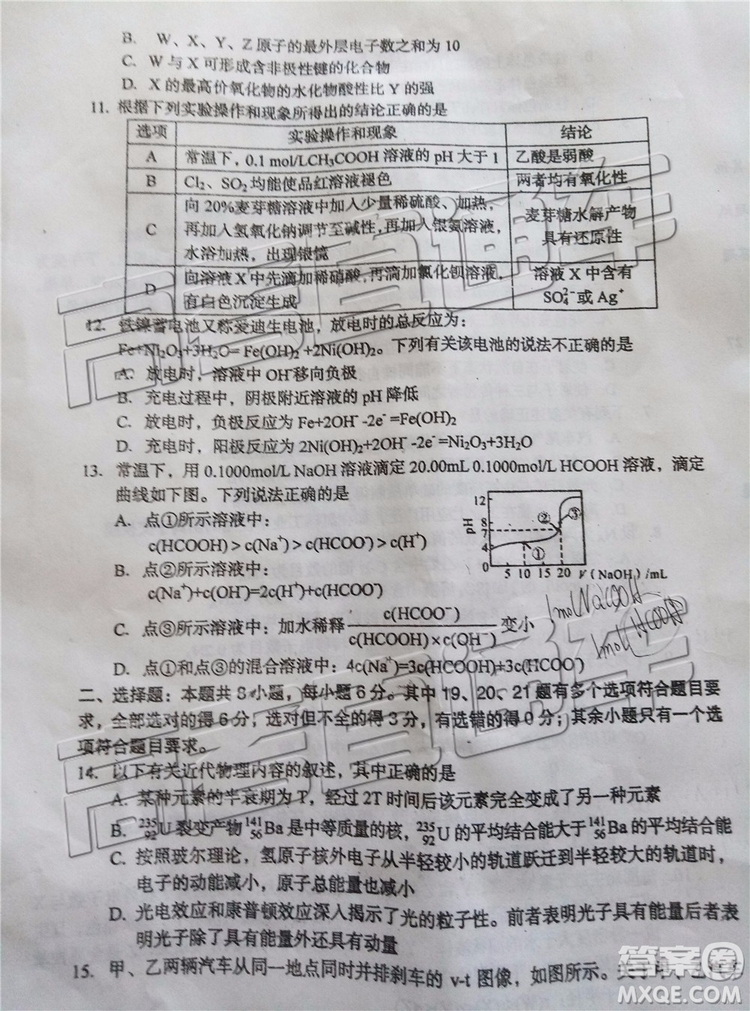 B. W、X、Y、Z原子的最外层电子数之和为10
C. W与X可形成含非极性键的化合物
D. X的最高价氧化物的水化物酸性比Y的强
11. 根据下列实验操作和现象所得出的结论正确的是
选项 实验操作和现象 结论
A 常温下，0.1 mol/LCH₃COOH 溶液的pH大于1 乙酸是弱酸
B Cl₂、SO₂均能使品红溶液褪色 两者均有氧化性
C 向20%麦芽糖溶液中加入少量稀硫酸、加热，
再加入氢氧化钠调节至碱性，再加入银氨溶液，
水浴加热，出现银镜
麦芽糖水解产物
具有还原性
D 向溶液X中先滴加稀硝酸，再滴加氯化钡溶液，
有白色沉淀生成
溶液X中含有
SO₄²⁻或Ag⁺
12. 铁镍蓄电池又称爱迪生电池，放电时的总反应为：
Fe+Ni₂O₃+3H₂O= Fe(OH)₂ +2Ni(OH)₂。下列有关该电池的说法不正确的是
A. 放电时，溶液中OH⁻移向负极
B. 充电过程中，阴极附近溶液的pH降低
C. 放电时，负极反应为 Fe+2OH⁻ -2e⁻ =Fe(OH)₂
D. 充电时，阳极反应为 2Ni(OH)₂+2OH⁻ -2e⁻ =Ni₂O₃+3H₂O
13. 常温下，用0.1000mol/L NaOH 溶液滴定 20.00mL 0.1000mol/L HCOOH 溶液，滴定
曲线如下图。下列说法正确的是
A. 点①所示溶液中：
c(HCOOH)＞c(Na⁺)＞c(HCOO⁻)＞c(H⁺)
B. 点②所示溶液中：
c(Na⁺)+c(OH⁻)=2c(H⁺)+c(HCOO⁻)
pH 12 8 7 4 0 ① ② ③ 5 10 15 20 V (NaOH) /mL
C. 点③所示溶液中：加水稀释 c(HCOO⁻) / c(HCOOH)×c(OH⁻) 变小
1molNaCOOH
1mol HCOOH
D. 点①和点③的混合溶液中：4c(Na⁺)=3c(HCOOH)+3c(HCOO⁻)
二、选择题：本题共8小题，每小题6分。其中19、20、21题有多个选项符合题目要
求，全部选对的得6分；选对但不全的得3分，有选错的得0分；其余小题只有一个选
项符合题目要求。
14. 以下有关近代物理内容的叙述，其中正确的是
A. 某种元素的半衰期为T，经过2T时间后该元素完全变成了另一种元素
B. ²³⁵₉₂U裂变产物¹⁴¹₅₆Ba是中等质量的核，²³⁵₉₂U的平均结合能大于¹⁴¹₅₆Ba的平均结合能
C. 按照玻尔理论，氢原子核外电子从半轻较小的轨道跃迁到半轻较大的轨道时，
电子的动能减小，原子总能量也减小
D. 光电效应和康普顿效应深入揭示了光的粒子性。前者表明光子具有能量后者表
明光子除了具有能量外还具有动量
15. 甲、乙两辆汽车从同一地点同时并排刹车的v-t图像，如图所示。关于甲、乙
高考直通车
高考直通车
答案圈
MXQE.COM